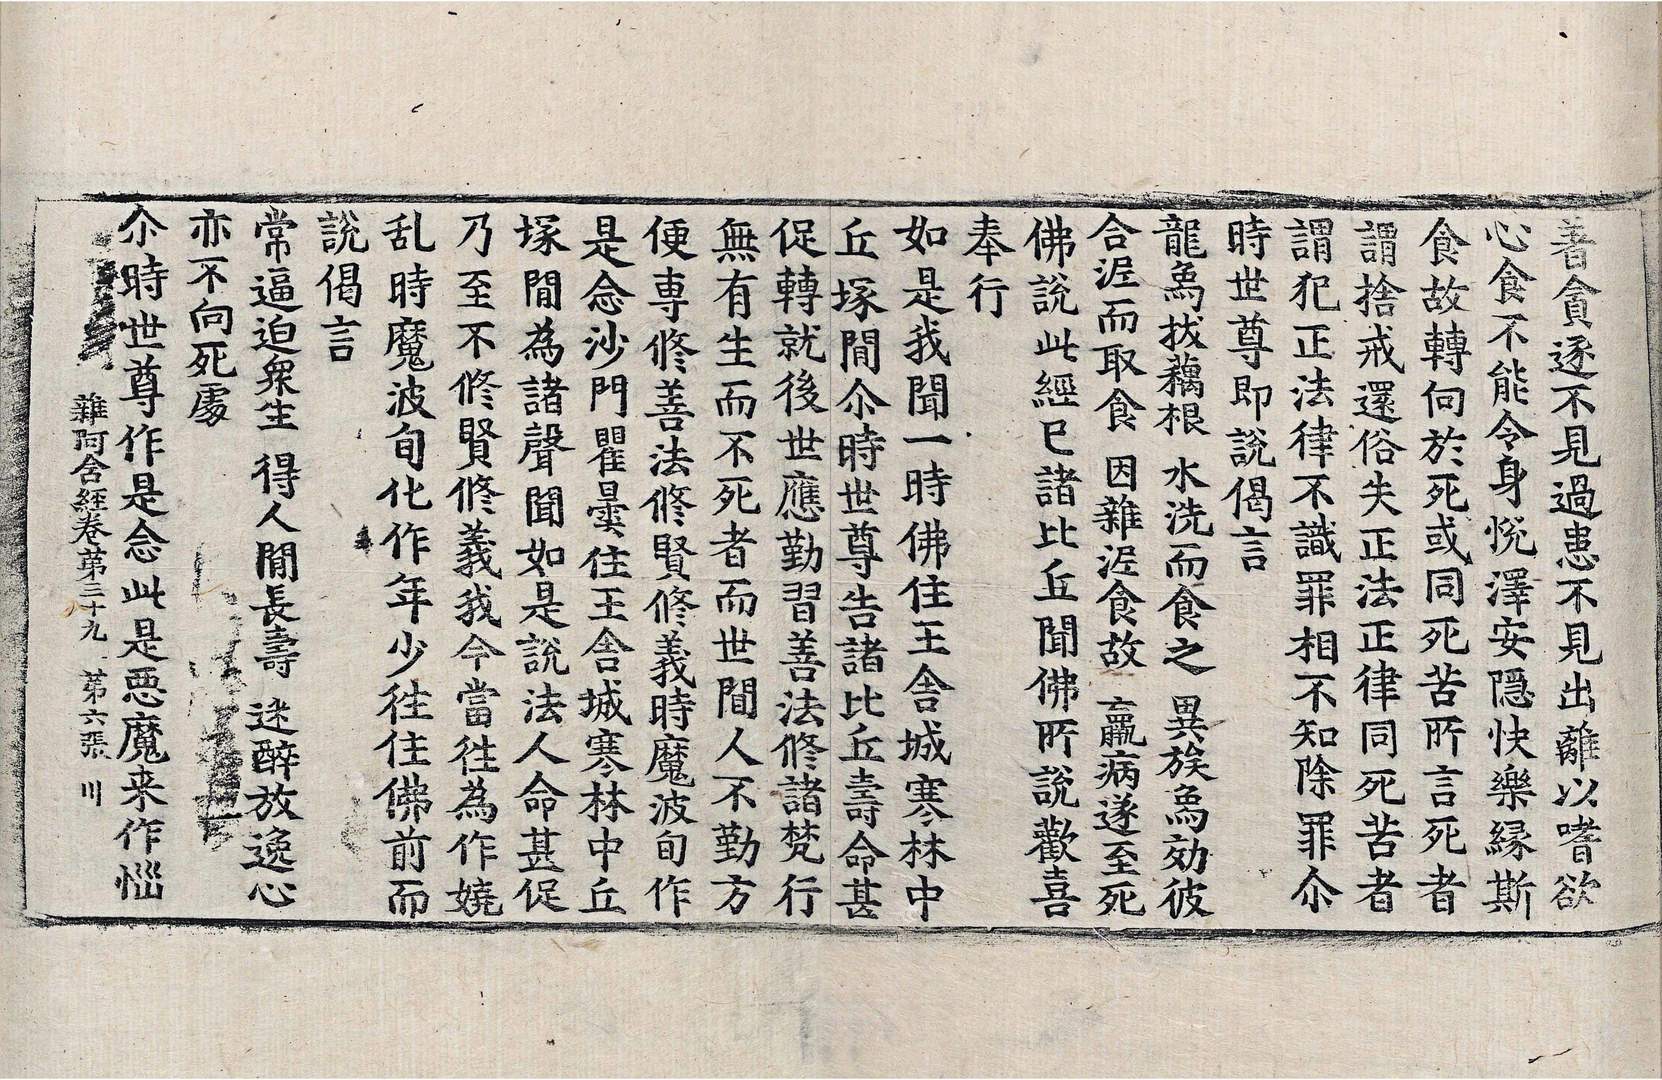 著貪逐不見過患不見出離以嗜欲
心食不能令身悅澤安隱快樂縁斯
食故轉向於死或同死苦所言死者
謂捨戒還俗失正法正律同死苦者
謂犯正法律不識罪相不知除罪尒
時世尊即說偈言
龍象拔藕根 水洗而食之 異族象効彼
合泥而取食 因雜泥食故 羸病遂至死
佛說此經已諸比丘聞佛所說歡喜
奉行
如是我聞一時佛住王舍城寒林中
丘塚閒尒時世尊告諸比丘壽命甚
促轉就後世應勤習善法修諸梵行
無有生而不死者而世間人不勤方
便専修善法修賢修義時魔波旬作
是念沙門瞿曇住王舍城寒林中丘
塚閒為諸聲聞如是說法人命甚促
乃至不修賢修義我今當往為作嬈
乱時魔波旬化作年少往住佛前而
說偈言
常逼迫衆生 得人閒長壽 迷醉放逸心
亦不向死處
尒時世尊作是念此是惡魔来作惱
雜阿含経卷第三十九 第六張 川